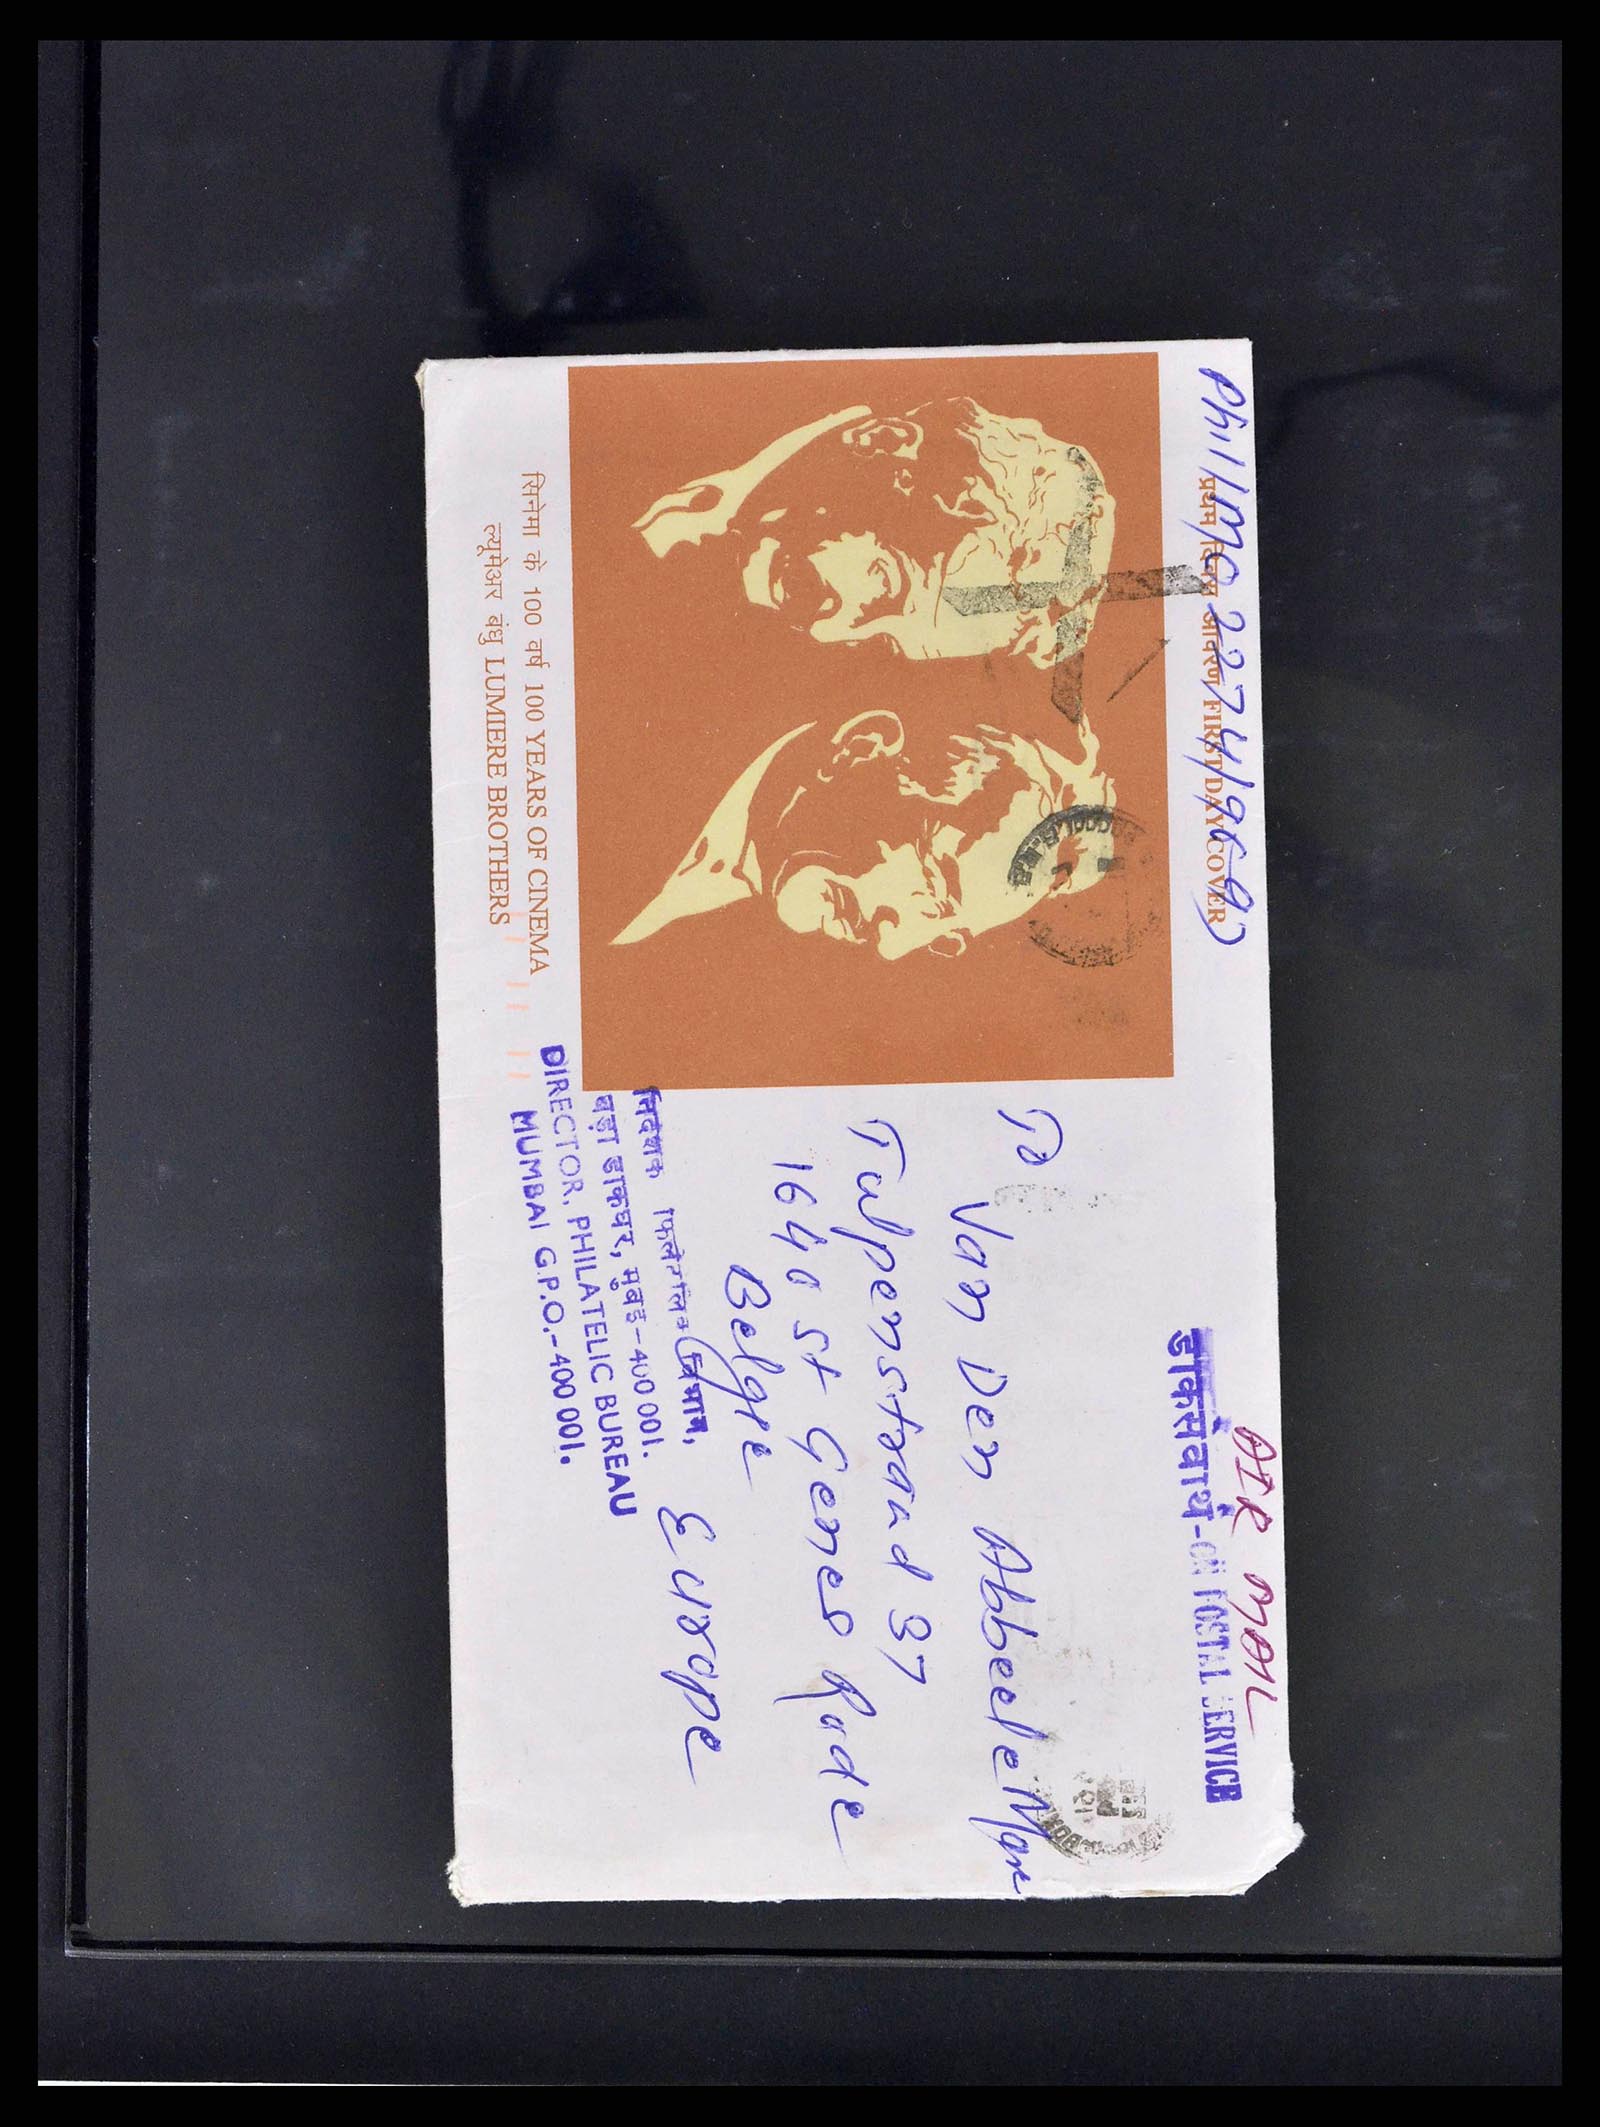 Phil/MO 2274/96-97
प्रथम दिवस आवरण FIRST DAY COVER
AIR MAIL
डाकसेवार्थ- POSTAL SERVICE
सिनेमा के 100 वर्ष 100 YEARS OF CINEMA
ल्यूमेअर बंधु LUMIERE BROTHERS
To
Van Den Abbeele Marc
Tulpenstraat 37
1640 St Genes Rode
Belgie
Europe
निदेशक फिलेटलिक विभाग,
बड़ा डाकघर, मुंबई-400 001.
DIRECTOR, PHILATELIC BUREAU
MUMBAI G.P.O.-400 001.